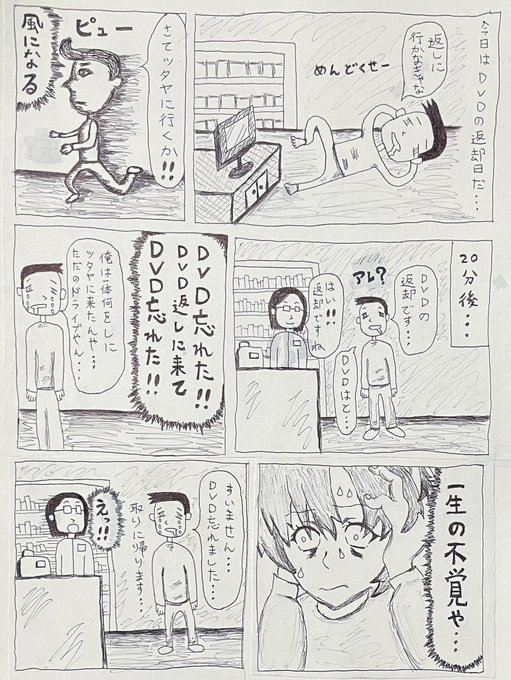 今日はDVDの返却日だ・・・
返しに
行かなきゃな
めんどくせー
さてツタヤに行くか!!
ピュー
風になる
20分後・・・
DVDの
返却です・・・
アレ?
DVDはと・・・
はい!!
返却ですね
DVD忘れた!!
DVD返しに来て
DVD忘れた!!
俺は一体何をしに
ツタヤに来たんや・・・
ただのドライブやん・・・
一生の不覚や・・・
すいません・・・
DVD忘れました・・・
取りに帰ります・・・
えっ!!!